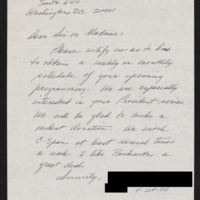 Suite 650
Washington, D.C. 20001
Dear Sir or Madame:
Please notify us as to how
to obtain a weekly or monthly
schedule of your upcoming
programing. We are especially
interested in your President series.
We will be glad to make a
modest donation. We watch
C-Span at least several times
a week & like Booknotes a
great deal.
Sincerely,